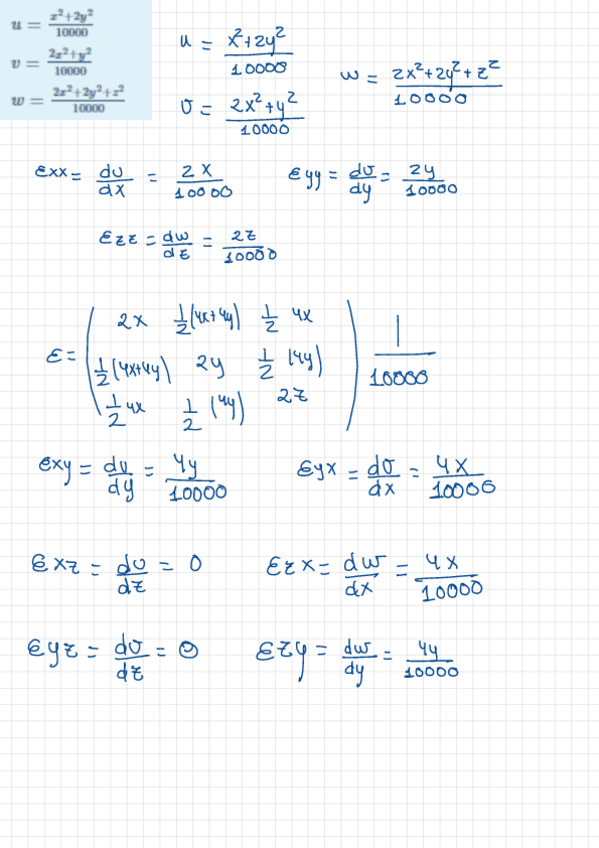 u = x²+2y² / 10000
v = 2x²+y² / 10000
w = 2x²+2y²+z² / 10000
u = x²+2y² / 10000
w = 2x²+2y²+z² / 10000
υ = 2x²+y² / 10000
εxx = du/dx = 2x / 10000
εyy = dυ/dy = 2y / 10000
εzz = dw/dz = 2z / 10000
ε = ( 2x 1/2(4x+4y) 1/2 4x
1/2(4x+4y) 2y 1/2 (4y)
1/2 4x 1/2 (4y) 2z ) 1 / 10000
εxy = du/dy = 4y / 10000 εyx = dυ/dx = 4x / 10000
εxz = du/dz = 0 εzx = dw/dx = 4x / 10000
εyz = dυ/dz = 0 εzy = dw/dy = 4y / 10000